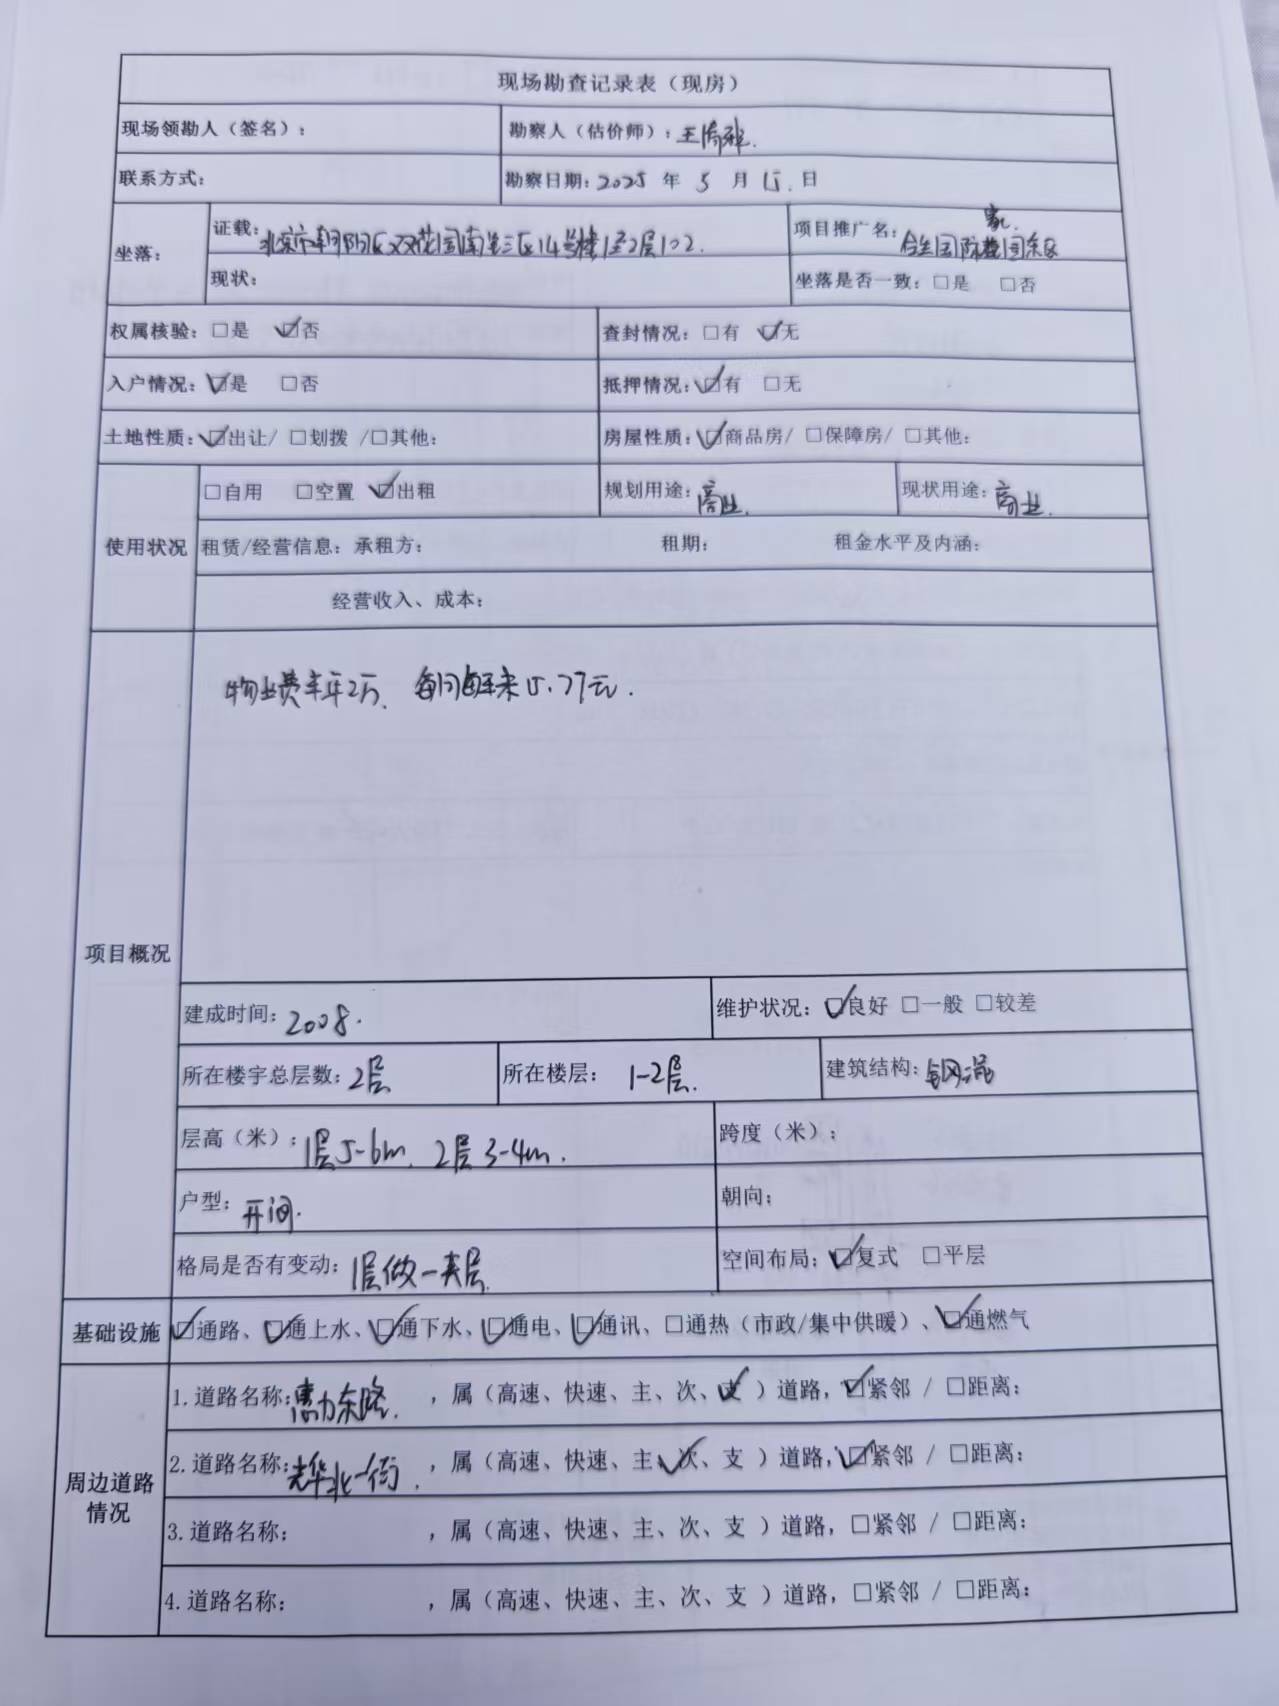 现场勘查记录表（现房）
现场领勘人（签名）： 勘察人（估价师）：王
联系方式： 勘察日期：2025 年 5 月 15 日
坐落： 证载：北京市朝阳区双花园南里三区14号楼1至2层102. 项目推广名：合生国际花园东区
现状： 坐落是否一致：□是 □否
权属核验：□是 ☑否 查封情况：□有 ☑无
入户情况：☑是 □否 抵押情况：☑有 □无
土地性质：☑出让/ □划拨 /□其他： 房屋性质：☑商品房/ □保障房/ □其他：
使用状况 □自用 □空置 ☑出租 规划用途：商业. 现状用途：商业.
租赁/经营信息：承租方： 租期： 租金水平及内涵：
经营收入、成本：
项目概况
物业费 年2万、每月每平米 5.77元.
建成时间：2008. 维护状况：☑良好 □一般 □较差
所在楼宇总层数：2层 所在楼层：1-2层. 建筑结构：钢混
层高（米）：1层5-6m. 2层3-4m. 跨度（米）：
户型：开间. 朝向：
格局是否有变动：1层做一夹层. 空间布局：☑复式 □平层
基础设施 ☑通路、☑通上水、☑通下水、☑通电、☑通讯、□通热（市政/集中供暖）、☑通燃气
周边道路情况
1.道路名称：惠力东路. ，属（高速、快速、主、次、支✓）道路，☑紧邻 / □距离：
2.道路名称：光华北一街. ，属（高速、快速、主、次✓、支 ）道路，☑紧邻 / □距离：
3.道路名称： ，属（高速、快速、主、次、支 ）道路，□紧邻 / □距离：
4.道路名称： ，属（高速、快速、主、次、支 ）道路，□紧邻 / □距离：